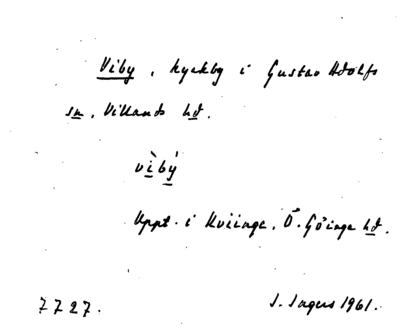 Viby, kyrkby i Gustav Adolfs
sn, Villands hd.
vìbý
Uppt. i Kviinge, Ö. Göinge hd.
7727. S. Ingers 1961.